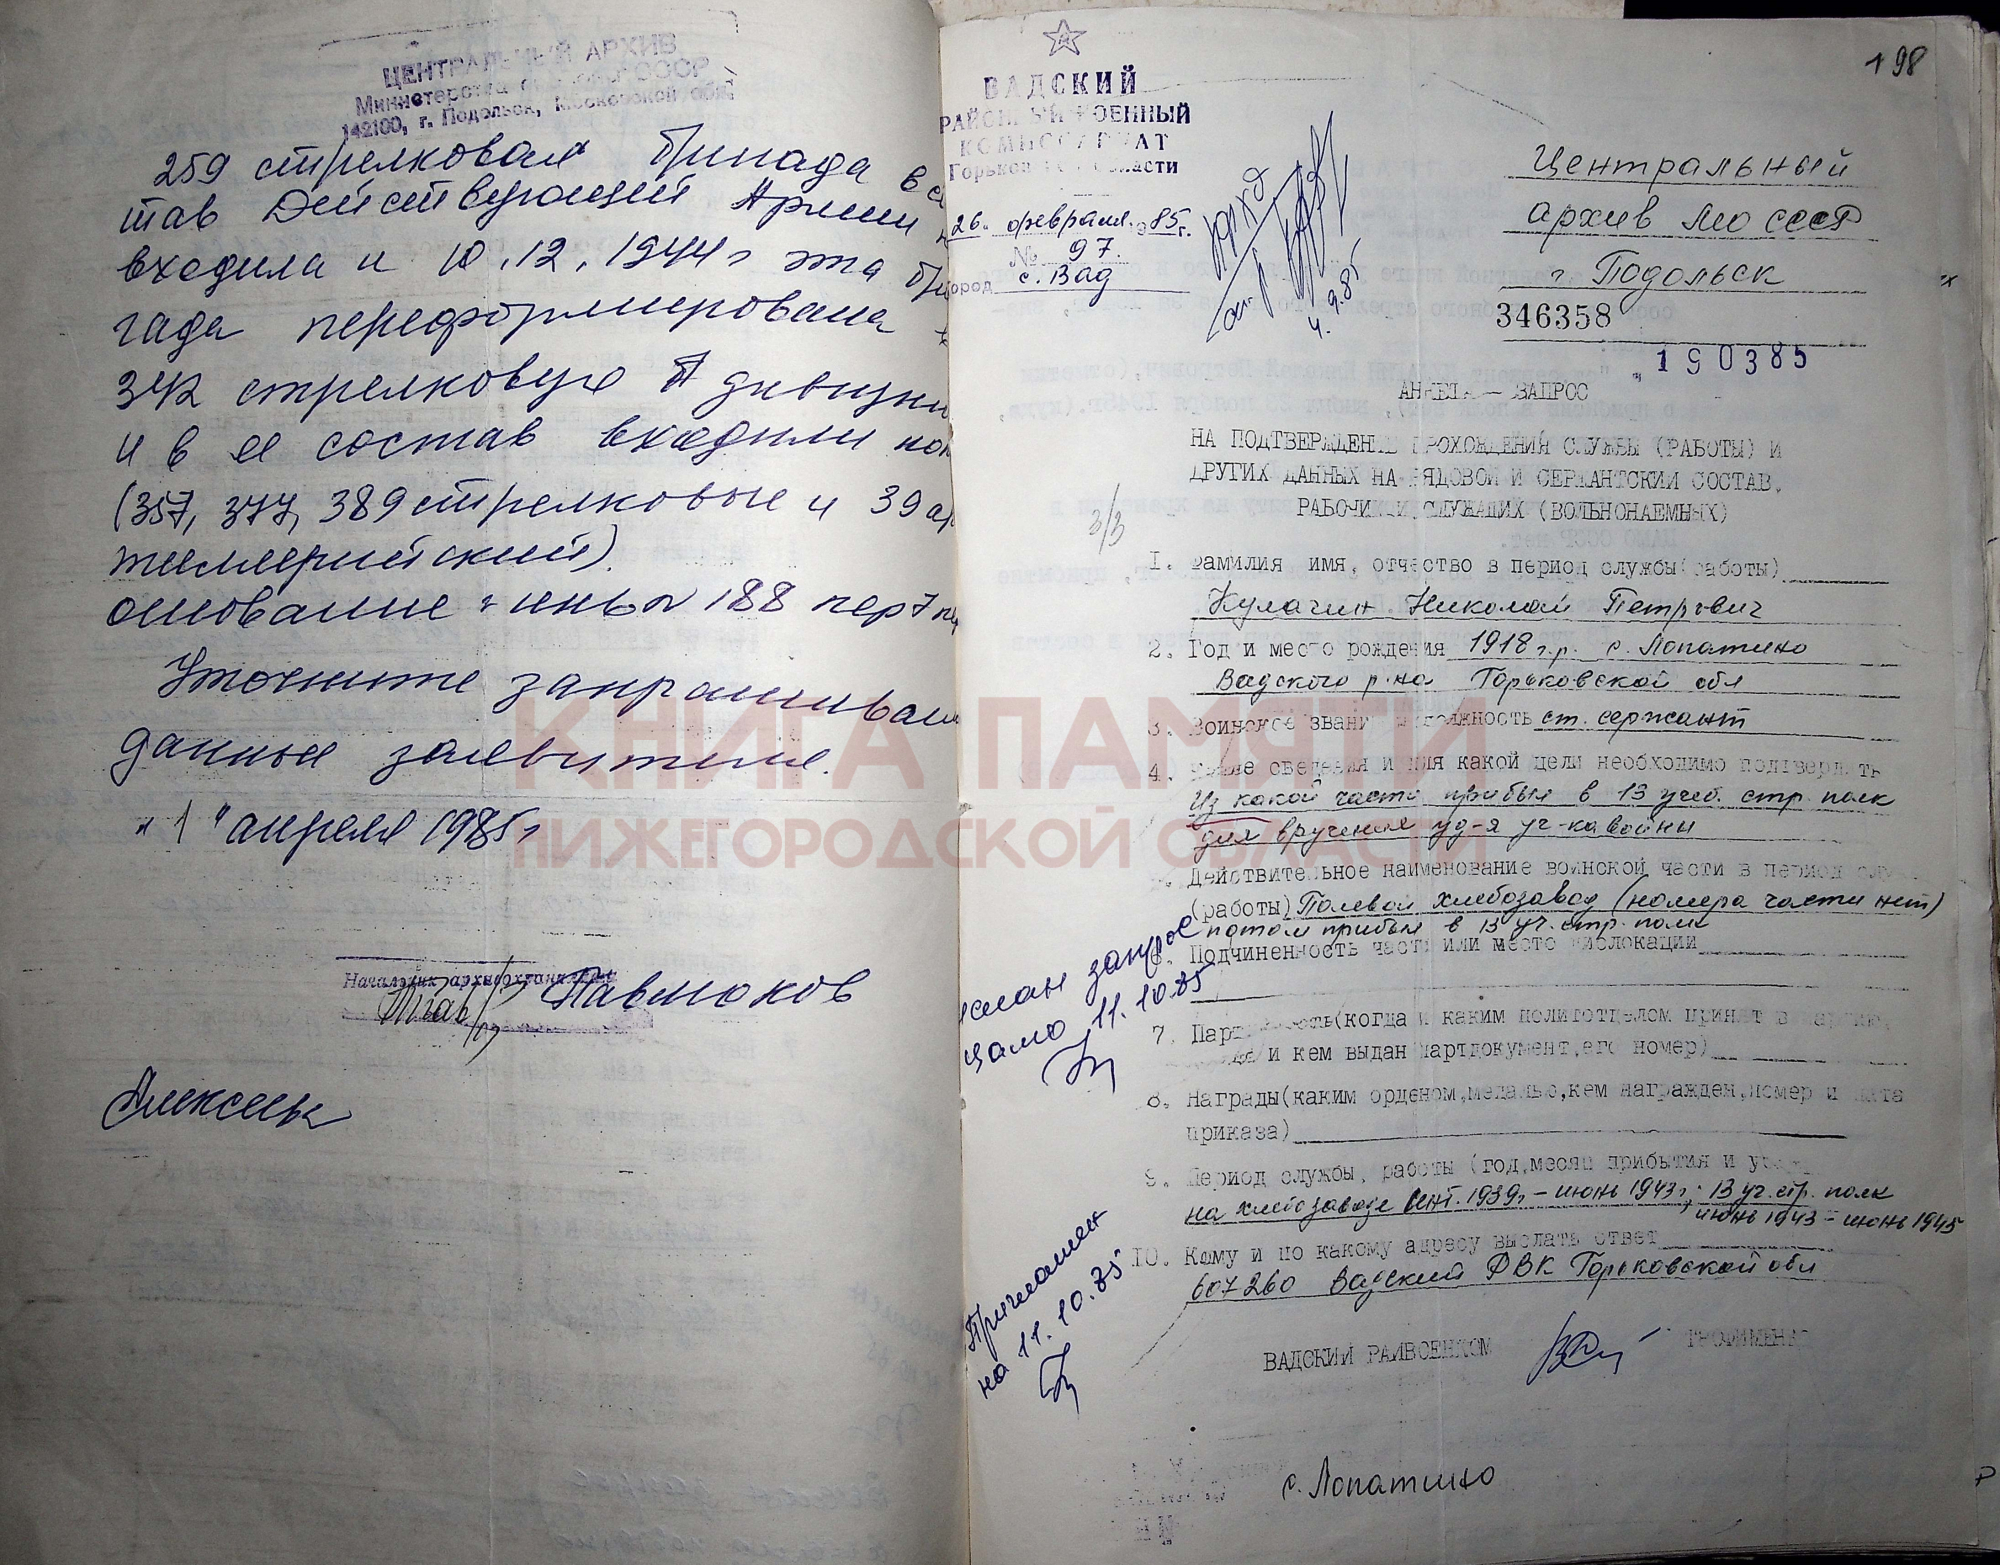 ЦЕНТРАЛЬНЫЙ АРХИВ
Министерства обороны СССР
142100, г. Подольск, Московской обл.
259 стрелковая бригада в сос
тав Действующей Армии н
входила и 10.12.1944г эта бри
гада переформирована в
342 стрелковую дивизию
и в ее состав входили пол
(357, 377, 389 стрелковые и 39 ар
тиллерийский).
основание: 188 пер 7
Уточните запрашиваем
данные заявителя.
"1" апреля 1985г
Начальник архивохранилища
Павлюков
198
ВАДСКИЙ
РАЙОННЫЙ ВОЕННЫЙ
КОМИССАРИАТ
Горьковской области
26. февраля 1985г.
№ 97.
город с. Вад
4.9.85
Центральный
архив МО СССР
г. Подольск
346358
190385
АНКЕТА — ЗАПРОС
НА ПОДТВЕРЖДЕНИЕ ПРОХОЖДЕНИЯ СЛУЖБЫ (РАБОТЫ) И
ДРУГИХ ДАННЫХ НА РЯДОВОЙ И СЕРЖАНТСКИЙ СОСТАВ,
РАБОЧИХ И СЛУЖАЩИХ (ВОЛЬНОНАЕМНЫХ)
3/3
1. Фамилия имя, отчество в период службы(работы)
Кулагин Николай Петрович
2. Год и место рождения 1918 г.р. с. Лопатино
Вадского р-на Горьковской обл
3. Воинское звание и должность ст. сержант
4. Какие сведения и для какой цели необходимо подтвердить
Из какой части прибыл в 13 учеб. стр. полк
для вручения уд-я уч-ка войны
5. Действительное наименование воинской части в период служ
(работы) Полевой хлебозавод (номера части нет)
потом прибыл в 13 уч. стр. полк
6. Подчиненность части или место дислокации
7. Партийность(когда и каким политотделом принят в партию,
когда и кем выдан партдокумент,его номер)
8. Награды(каким орденом,медалью,кем награжден,номер и дата
приказа)
9. Период службы, работы (год,месяц прибытия и
на хлебозаводе сент. 1939г – июнь 1943г; 13 уч. стр. полк
июнь 1943 – июнь 1945
10. Кому и по какому адресу выслать ответ
607260 Вадский РВК Горьковской обл
ВАДСКИЙ РАЙВОЕНКОМ ТРОФИМЕНКО
с. Лопатино
запрос
ЦАМО 11.10.85
Приглашен
на 11.10.85
КНИГА ПАМЯТИ
НИЖЕГОРОДСКОЙ ОБЛАСТИ